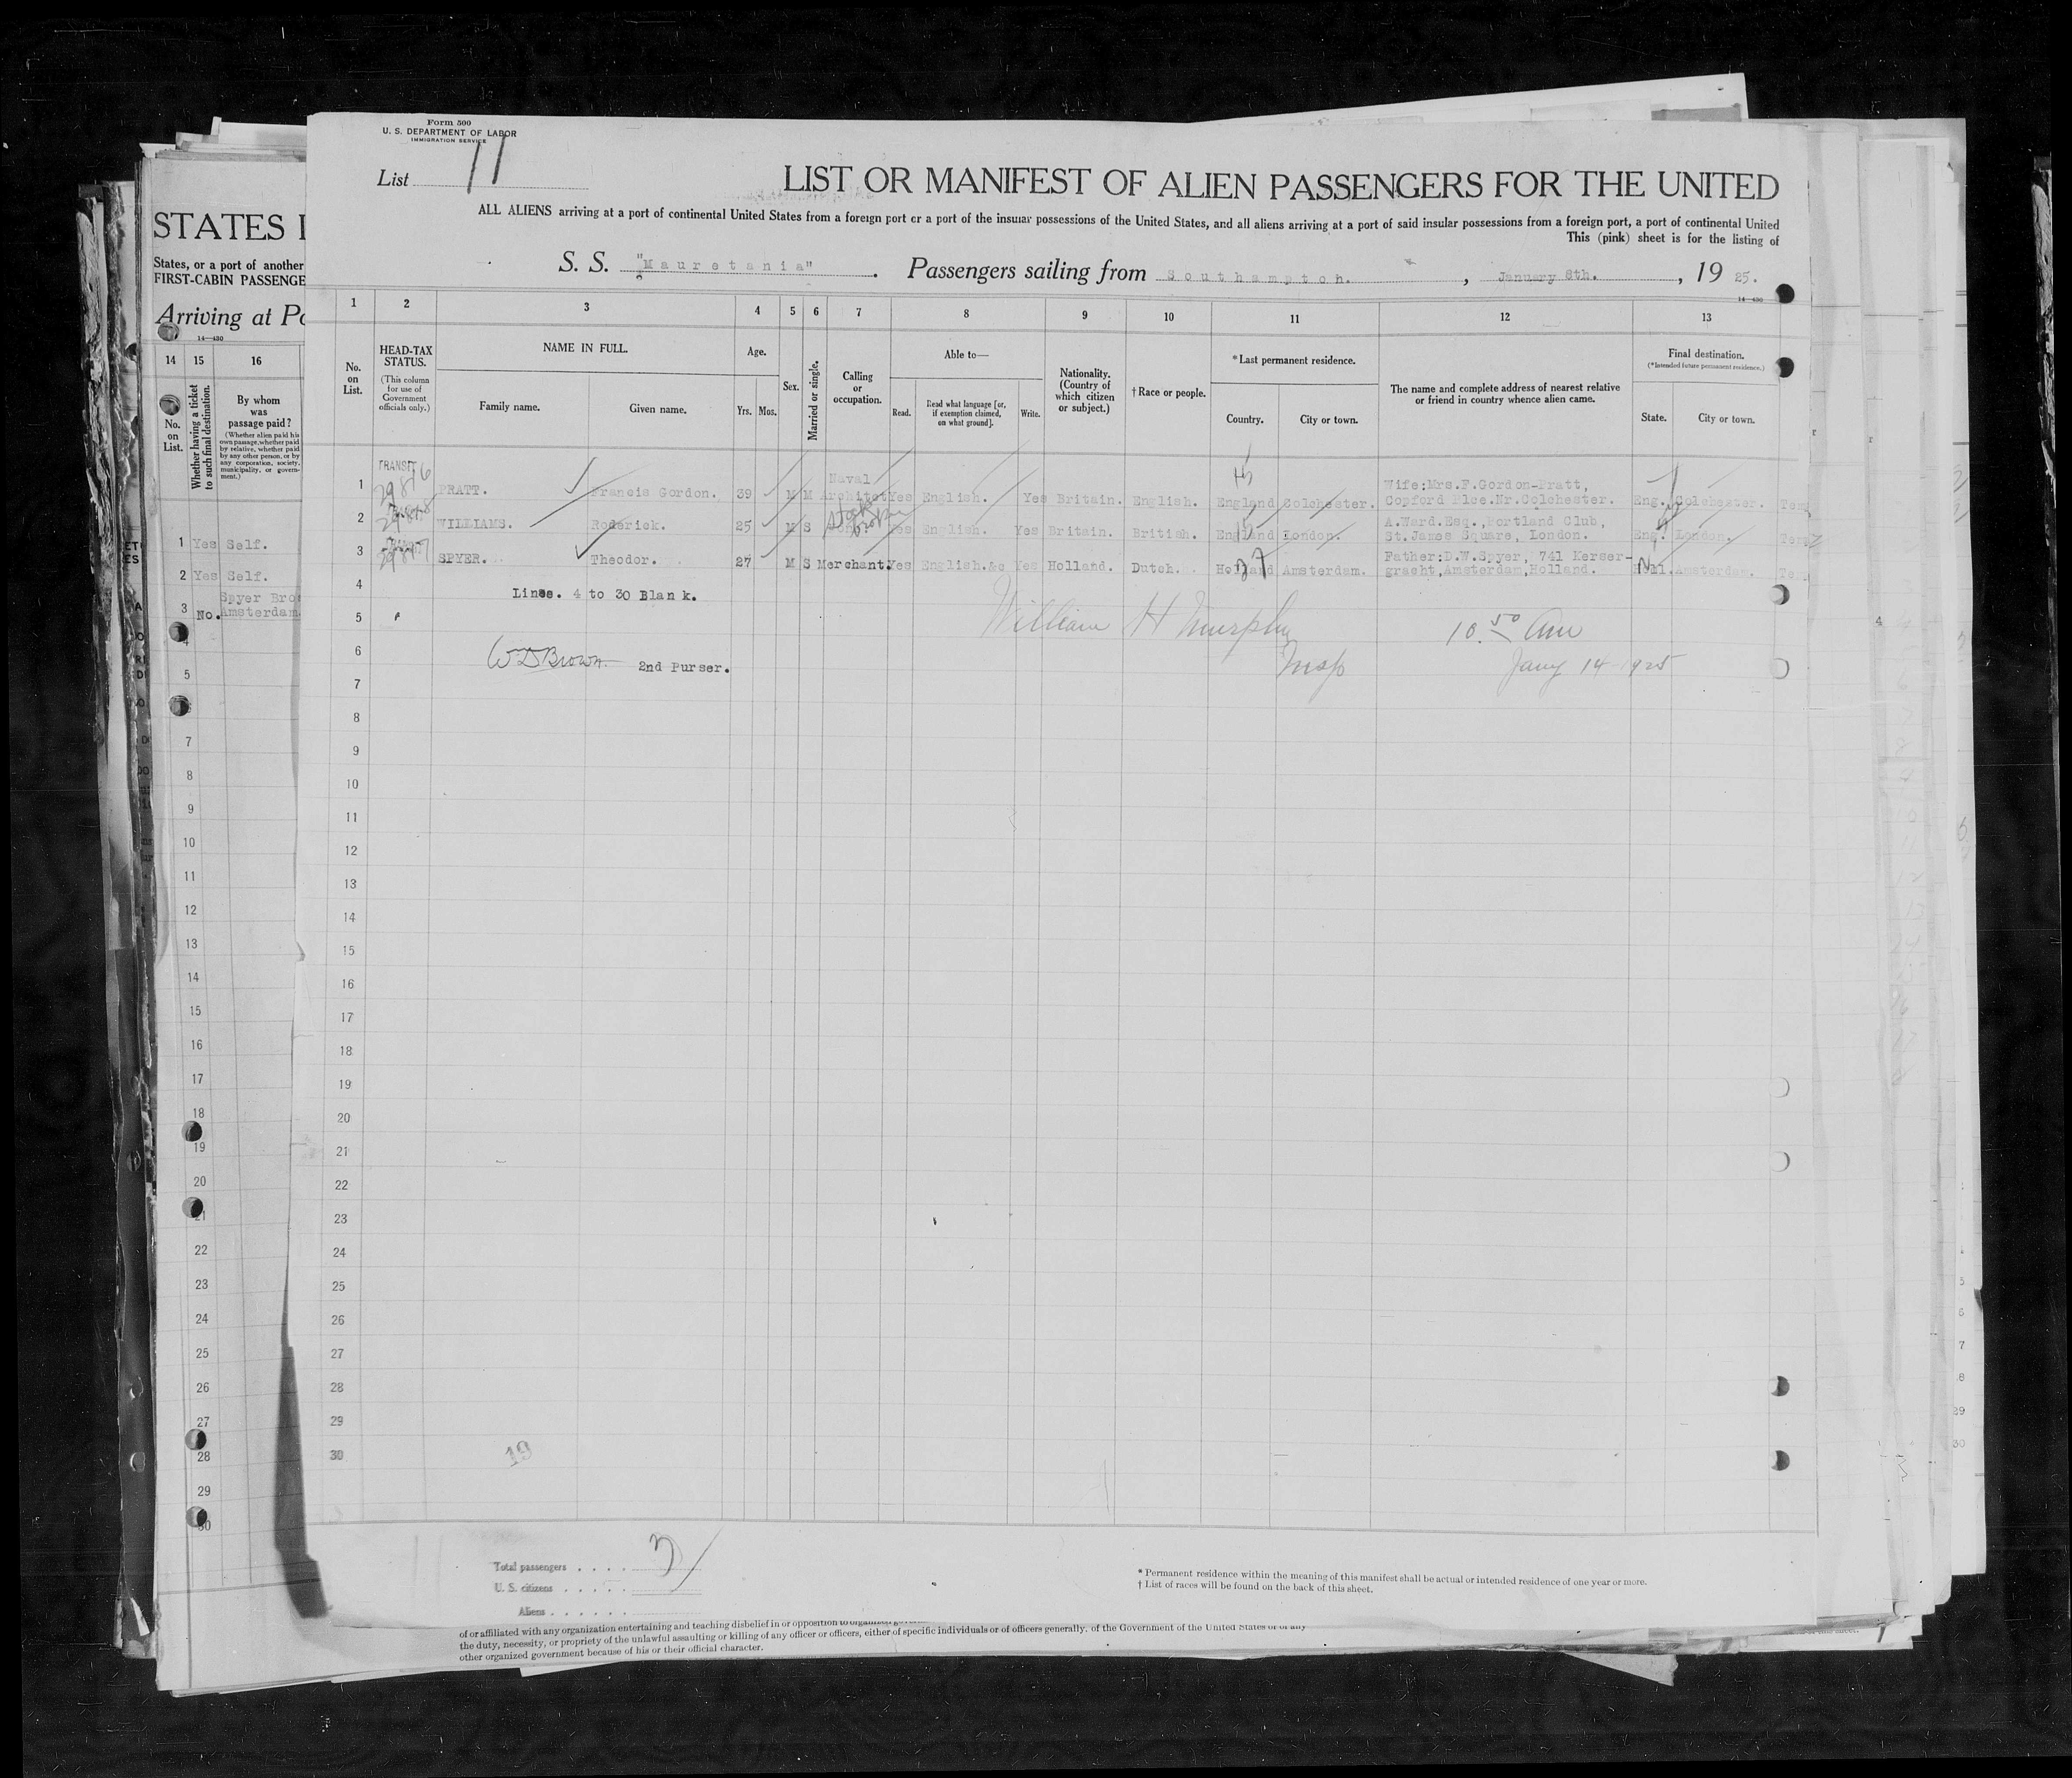 Form 500
U. S. DEPARTMENT OF LABOR
IMMIGRATION SERVICE
List 11
LIST OR MANIFEST OF ALIEN PASSENGERS FOR THE UNITED
ALL ALIENS arriving at a port of continental United States from a foreign port or a port of the insular possessions of the United States, and all aliens arriving at a port of said insular possessions from a foreign port, a port of continental United
This (pink) sheet is for the listing of
S. S. "Mauretania". Passengers sailing from Southampton. , January 8th. , 19 25.
14—430
1 2 3 4 5 6 7 8 9 10 11 12 13
No. on List.
HEAD-TAX STATUS.
(This column for use of Government officials only.)
NAME IN FULL.
Family name. Given name.
Age.
Yrs. Mos.
Sex.
Married or single.
Calling or occupation.
Able to—
Read. Read what language [or, if exemption claimed, on what ground]. Write.
Nationality. (Country of which citizen or subject.)
† Race or people.
*Last permanent residence.
Country. City or town.
The name and complete address of nearest relative or friend in country whence alien came.
Final destination.
(*Intended future permanent residence.)
State. City or town.
1 TRANSIT PRATT. Francis Gordon. 39 M M Naval Architect Yes English. Yes Britain. English. England Colchester. Wife:Mrs.F.Gordon-Pratt, Copford Plce.Nr.Colchester. Eng. Colchester.
2 WILLIAMS. Roderick. 25 M S Yes English. Yes Britain. British. England London. A.Ward.Esq.,Portland Club, St.James Square, London. Eng. London.
3 SPYER. Theodor. 27 M S Merchant. Yes English.&c Yes Holland. Dutch. Holland Amsterdam. Father:D.W.Spyer, 741 Kerser-gracht,Amsterdam,Holland. Holl. Amsterdam.
4 Lines. 4 to 30 Blank.
5 William H Murphy 10.50 Am
6 W D Brown. 2nd Purser. Insp Jany 14-1925
7
8
9
10
11
12
13
14
15
16
17
18
19
20
21
22
23
24
25
26
27
28
29
30
19
Total passengers . . . . 3
U. S. citizens . . . . .
Aliens . . . . . .
* Permanent residence within the meaning of this manifest shall be actual or intended residence of one year or more.
† List of races will be found on the back of this sheet.
of or affiliated with any organization entertaining and teaching disbelief in or opposition to organized
the duty, necessity, or propriety of the unlawful assaulting or killing of any officer or officers, either of specific individuals or of officers generally, of the Government of the United States or of any
other organized government because of his or their official character.
STATES
States, or a port of another
FIRST-CABIN PASSENGE
Arriving at Po
14—430
14 15 16
No. on List.
Whether having a ticket to such final destination.
By whom was passage paid?
(Whether alien paid his own passage, whether paid by relative, whether paid by any other person, or by any corporation, society, municipality, or government.)
1 Yes Self.
2 Yes Self.
3 No. Spyer Bro
Amsterdam
4
5
7
8
9
10
11
12
13
14
15
16
17
18
19
20
21
22
23
24
25
26
27
28
29
30